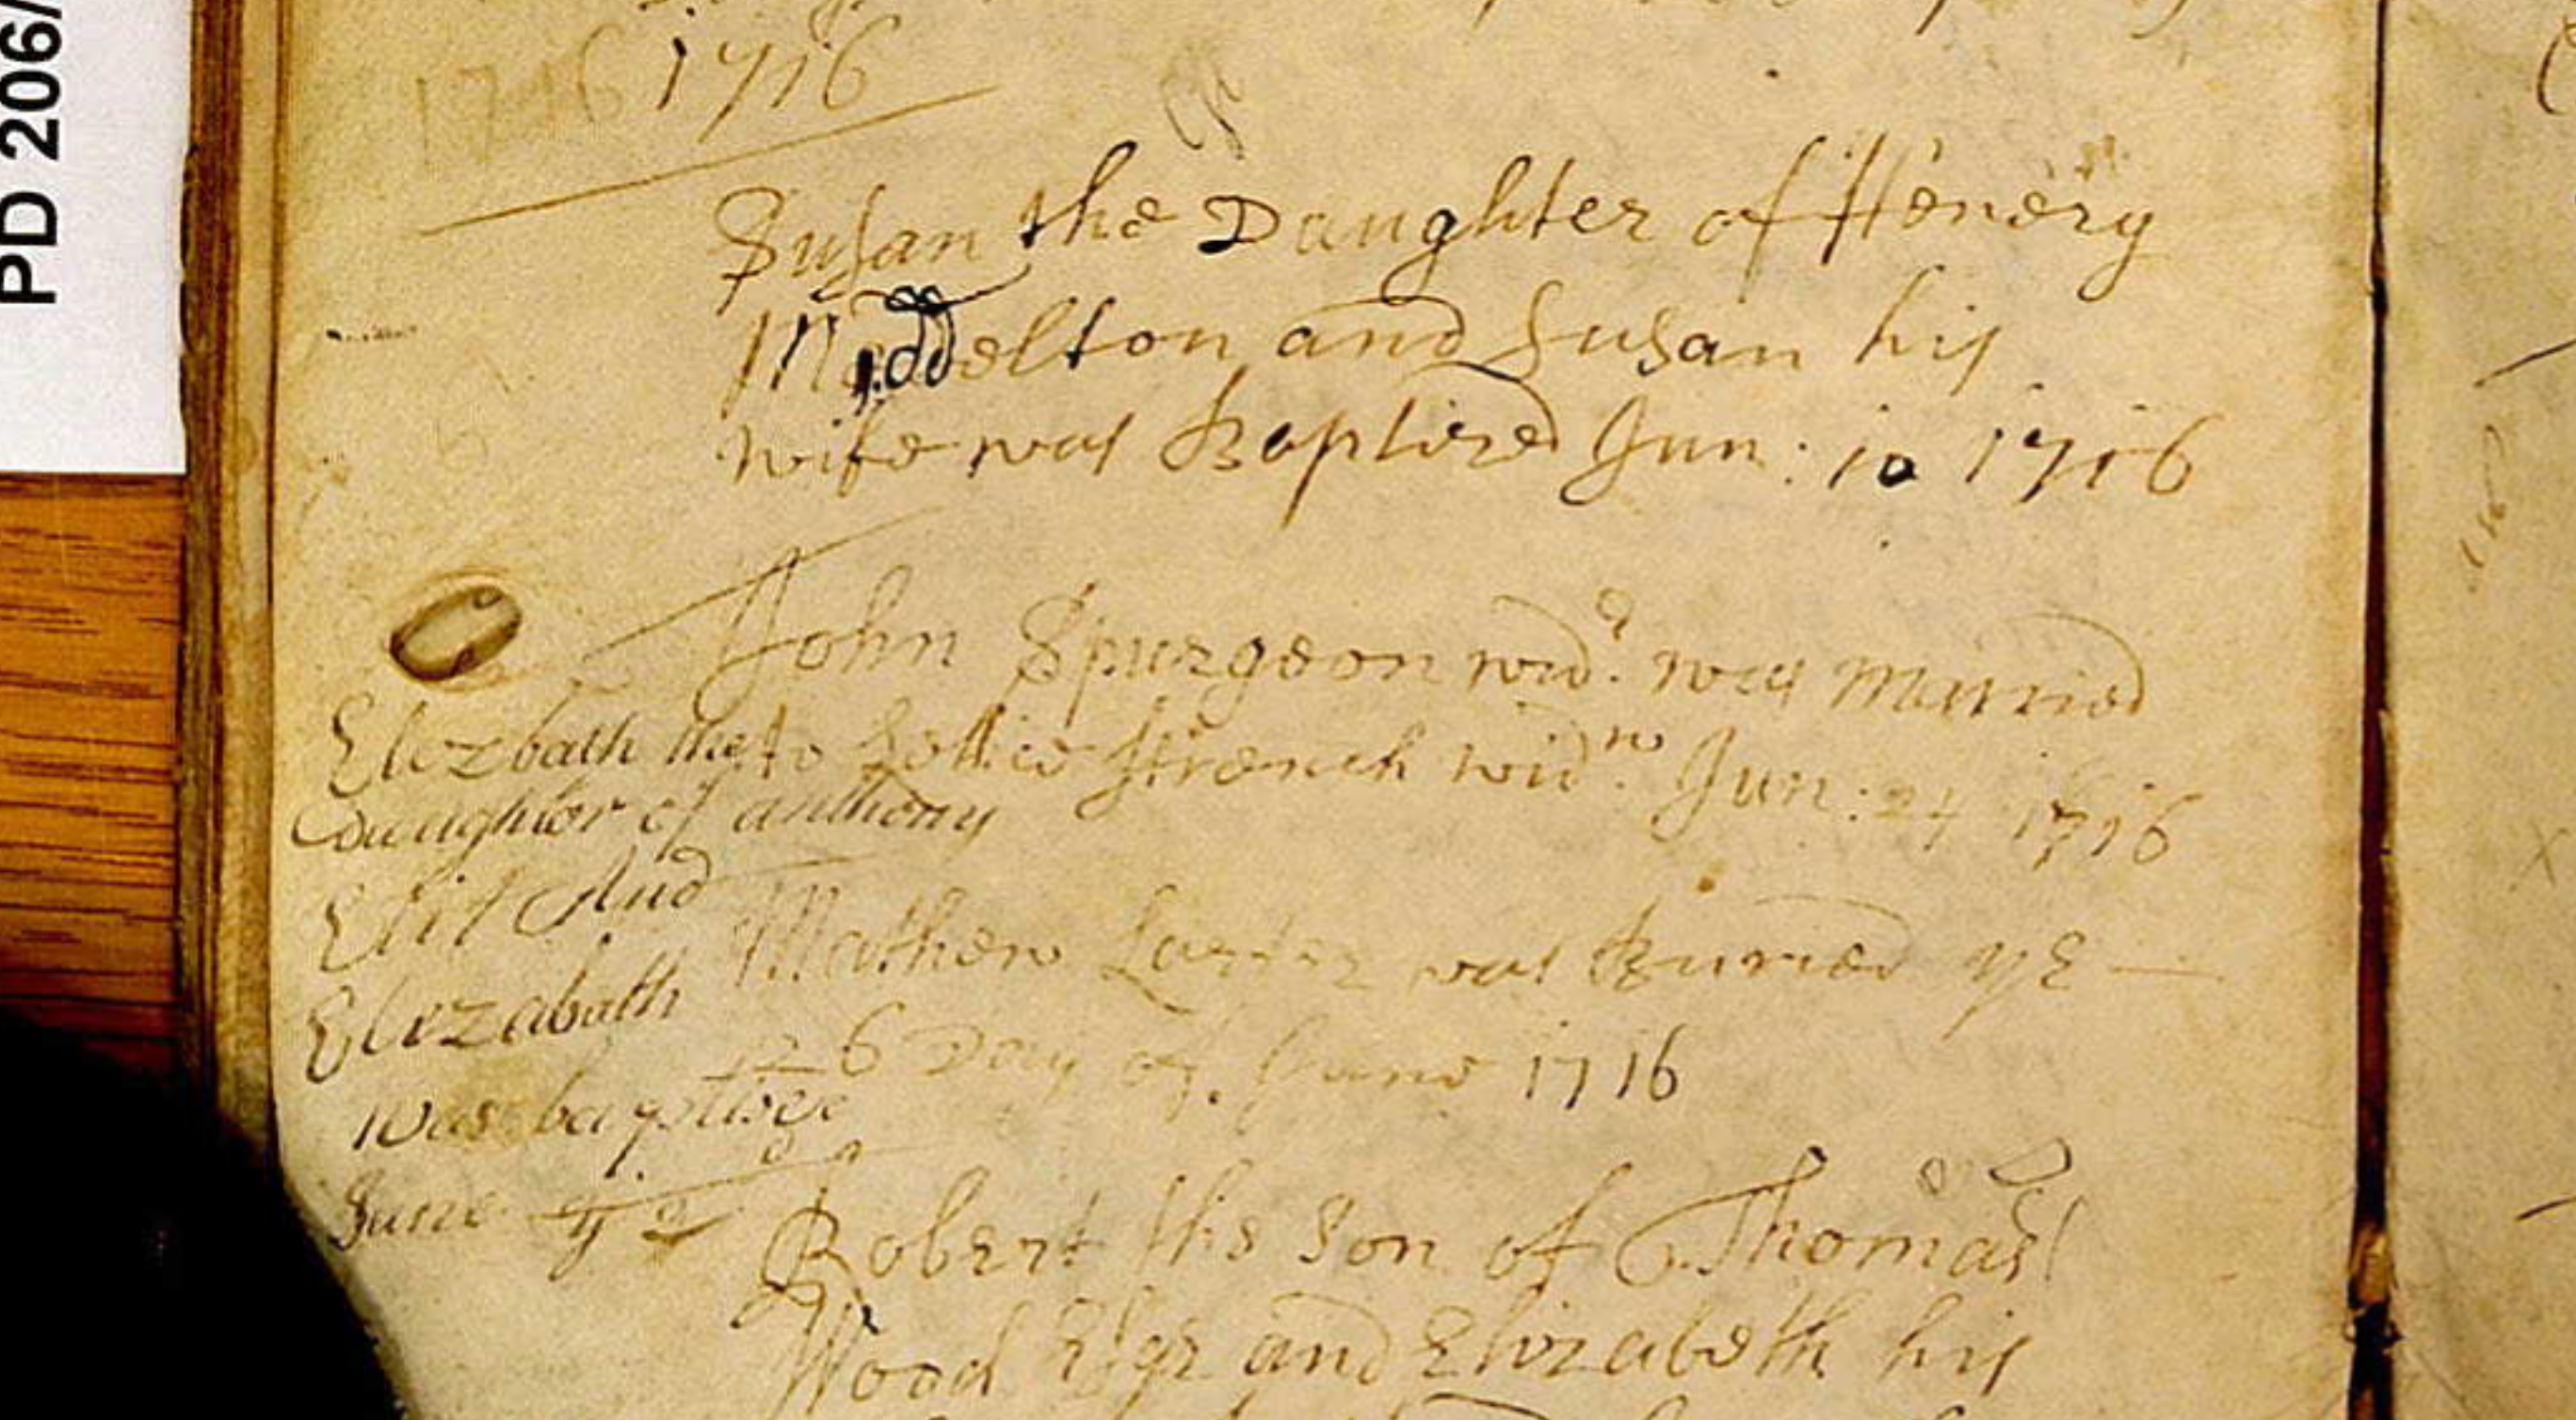 PD 206/
1716 1716
Susan the Daughter of Henery
Middelton and Susan his
wife was Baptized Jun: 10 1716
John Spurgeon wid.r was Married
to Lettice wid.w Jun: 24 1716
Elezbath the
Daughter of anthony
And
Elezabath
was baptised
June ye 2
Mathew was Buried ye
6 Day of June 1716
Robert the Son of Thomas
Wood Esqr and Elizabeth his